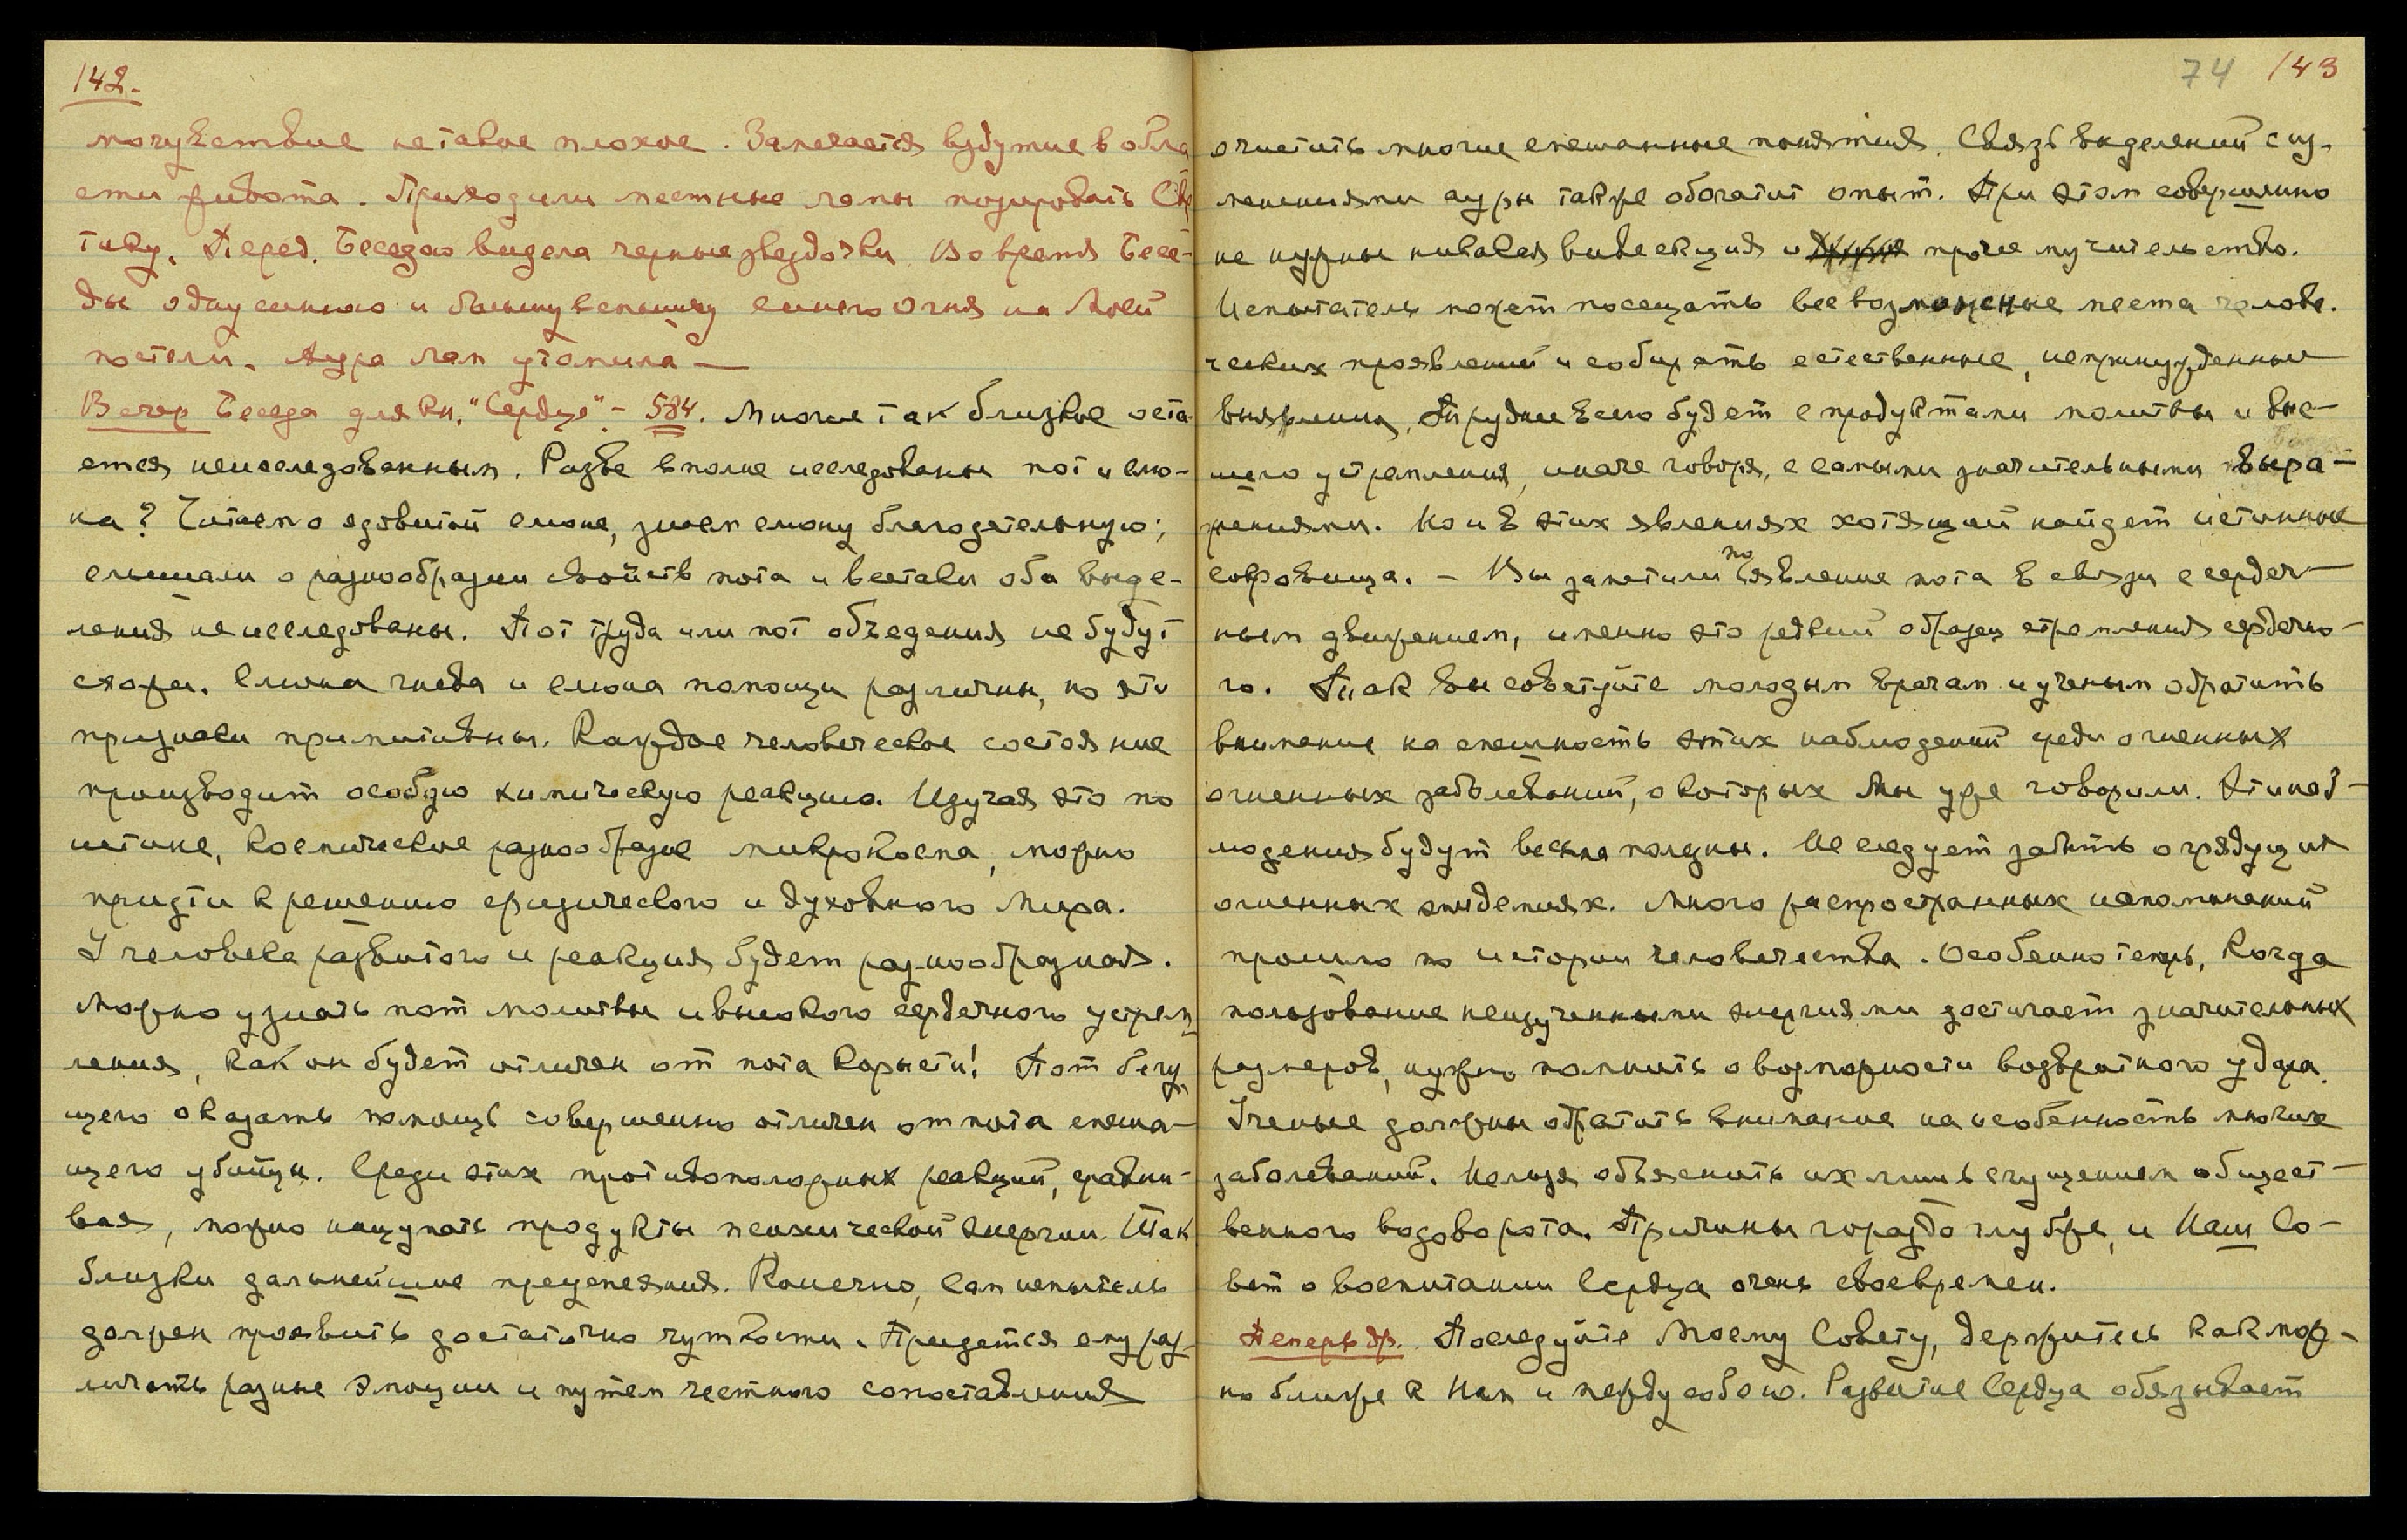 142.
мочувствие не такое плохое. Замечается вздутие в обла
сти живота. Приходили местные ламы позировать Све
тику. Перед. Беседою видела черные звездочки. Во время Бесе-
ды одну синюю и большую вспышку синего огня на Моей
постели. Аура лам утомила —
Вечер Беседа для кн. "Сердце" - 584. Многое так близкое оста-
ется неисследованным. Разве вполне исследованы пот и слю-
на? Читаем о ядовитой слюне, знаем слюну благодетельную;
слышали о разнообразии свойств пота и всетаки оба выде-
ления не исследованы. Пот труда или пот объедения не будут
схожи. Слюна гнева и слюна помощи различны, но эти
признаки примитивны. Каждое человеческое состояние
производит особую химическую реакцию. Изучая это по
истине, космическое разнообразие микрокосма, можно
придти к решению физического и духовного мира.
У человека развитого и реакция будет разнообразная.
Можно узнать пот молитвы и высокого сердечного устрем
ления, как он будет отличен от пота корысти! Пот бегу
щего оказать помощь совершенно отличен от пота спеша-
щего убийцы. Среди этих противоположных реакций, сравни-
вая, можно нащупать продукты психической энергии. Так
близки дальнейшие преуспеяния. Конечно, сам испытель
должен проявить достаточно чуткости. Придется ему раз-
личать разные эмоции и путем честного сопоставления
74 143
очистить многие смешанные понятия. Связь выделений с из-
лечениями ауры также обогатит опыт. При этом совершенно
не нужны никакая вивесекция и прочее мучительство.
Испытатель может посещать всевозможные места челове-
ческих проявлений и собирать естественные, непринужденные
выявления. Труднее всего будет с продуктами молитвы и выс-
шего устремления, иначе говоря, с самыми значительными выра-
жениями. Но и в этих явлениях хотящий найдет истинные
сокровища. - Вы заметили появление пота в связи с сердеч-
ным движением, именно это редкий образец стремления сердечно-
го. Так вы советуйте молодым врачам и ученым обратить
внимание на спешность этих наблюдений среди огненных
огненных заболеваний, о которых Мы уже говорили. Эти наб-
людения будут весьма полезны. Не следует забыть о грядущих
огненных эпидемиях. Много распространных напоминаний
прошло по истории человечества. Особенно теперь, когда
пользование неизученными энергиями достигает значительных
размеров, нужно помнить о возможности возвратного удара.
Ученые должны обратить внимание на особенность многих
заболеваний. Нельзя объяснить их лишь сгущением общест-
венного водоворота. Причины гораздо глубже, и Наш Со-
вет о воспитании Сердца очень своевремен.
Теперь др. Последуйте Моему Совету, держитесь как мож-
но ближе к Нам и между собою. Развитие Сердца обязывает